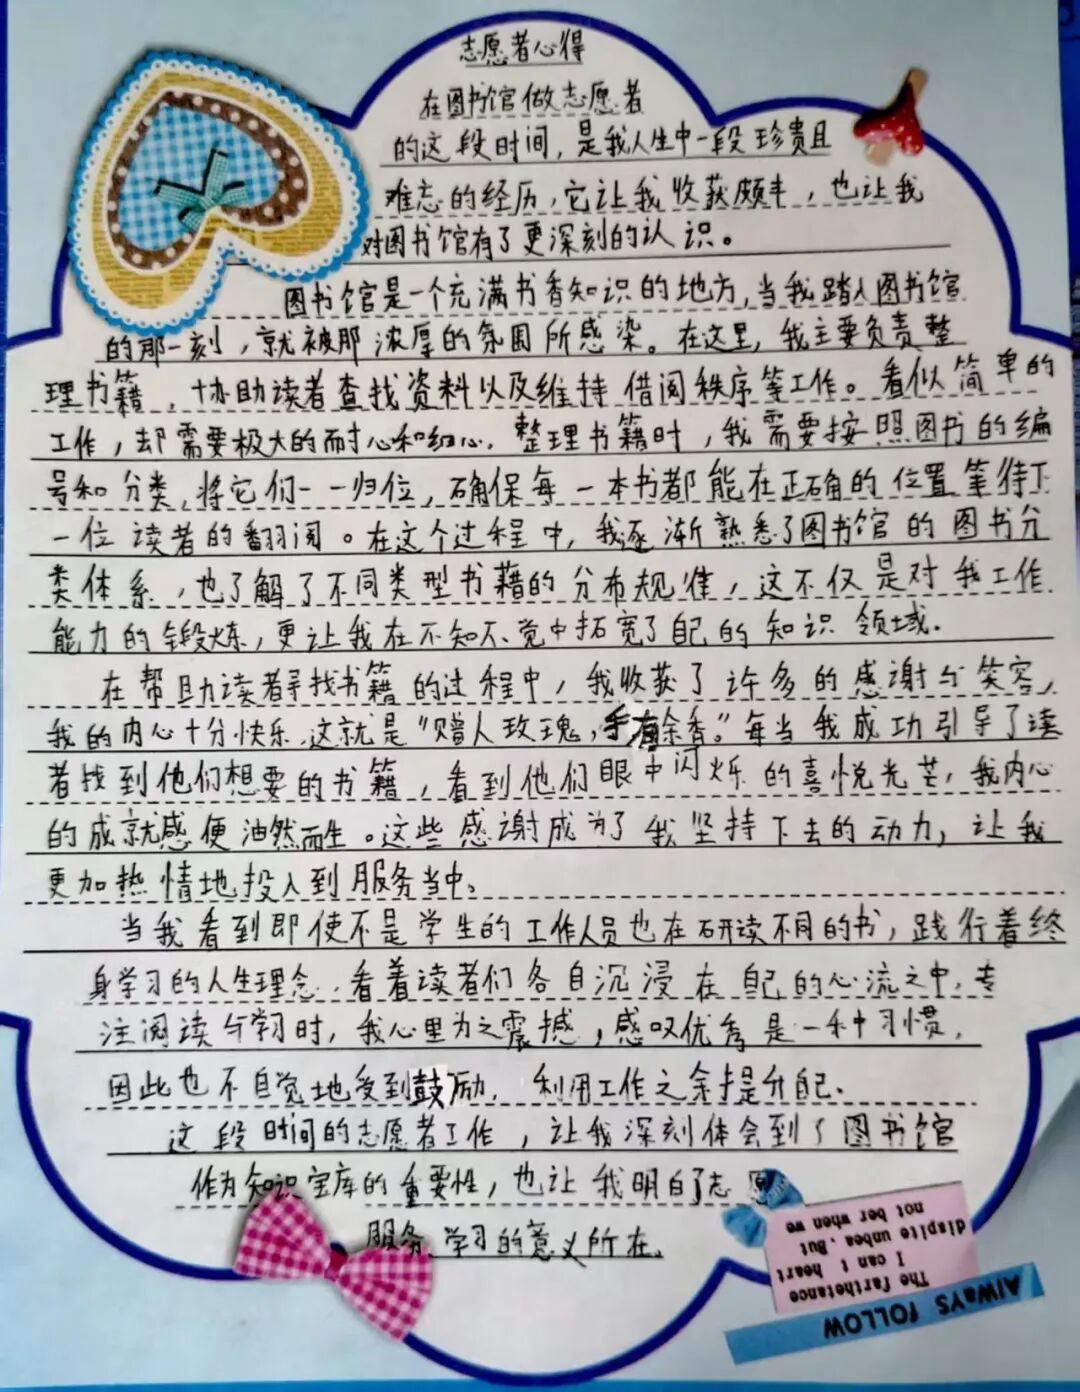 志愿者心得
在图书馆做志愿者
的这段时间，是我人生中一段珍贵且
难忘的经历，它让我收获颇丰，也让我
对图书馆有了更深刻的认识。
图书馆是一个充满书香知识的地方，当我踏入图书馆
的那一刻，就被那浓厚的氛围所感染。在这里，我主要负责整
理书籍，协助读者查找资料以及维持借阅秩序等工作。看似简单的
工作，却需要极大的耐心和细心。整理书籍时，我需要按照图书的编
号和分类，将它们一一归位，确保每一本书都能在正确的位置等待下
一位读者的翻阅。在这个过程中，我逐渐熟悉了图书馆的图书分
类体系，也了解了不同类型书籍的分布规律，这不仅是对我工作
能力的锻炼，更让我在不知不觉中拓宽了自己的知识领域.
在帮助读者寻找书籍的过程中，我收获了许多的感谢与笑容，
我的内心十分快乐.这就是“赠人玫瑰，手有余香。”每当我成功引导了读
者找到他们想要的书籍，看到他们眼中闪烁的喜悦光芒，我内心
的成就感便油然而生。这些感谢成为了我坚持下去的动力，让我
更加热情地投入到服务当中。
当我看到即使不是学生的工作人员也在研读不同的书，践行着终
身学习的人生理念.看着读者们各自沉浸在自己的心流之中.专
注阅读与学习时，我心里为之震撼，感叹优秀是一种习惯，
因此也不自觉地受到鼓励， 利用工作之余提升自己.
这段时间的志愿者工作，让我深刻体会到了图书馆
作为知识宝库的重要性，也让我明白了志愿
服务 学习的意义所在。
The farthetance
I can t heart
dispite unbea. But
not ber when we
AlWays FOLLOW